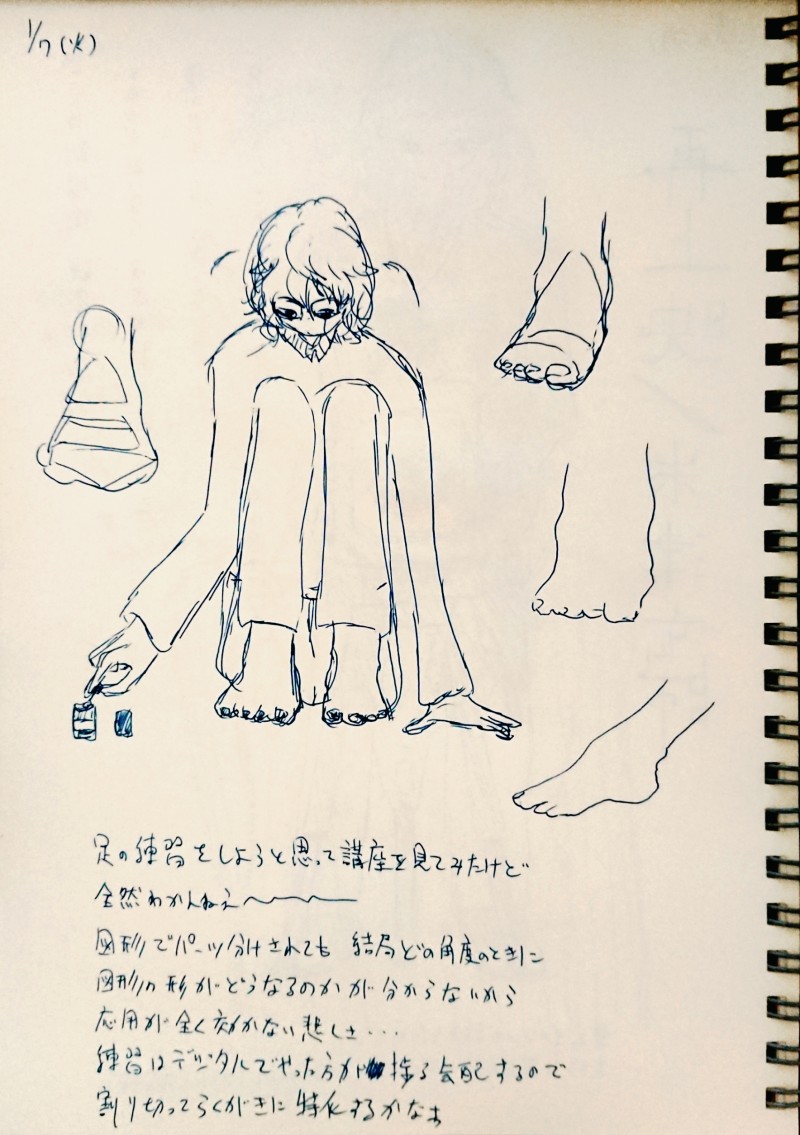 1/7(火)
足の練習をしようと思って講座を見てみたけど
全然わかんねえ〜〜〜
図形でパーツ分けされても 結局どの角度のときに
図形の形がどうなるのかが分からないから
応用が全く効かない悲しさ・・・
練習はデジタルでやった方が捗る気配するので
割り切ってらくがきに特化するかなぁ